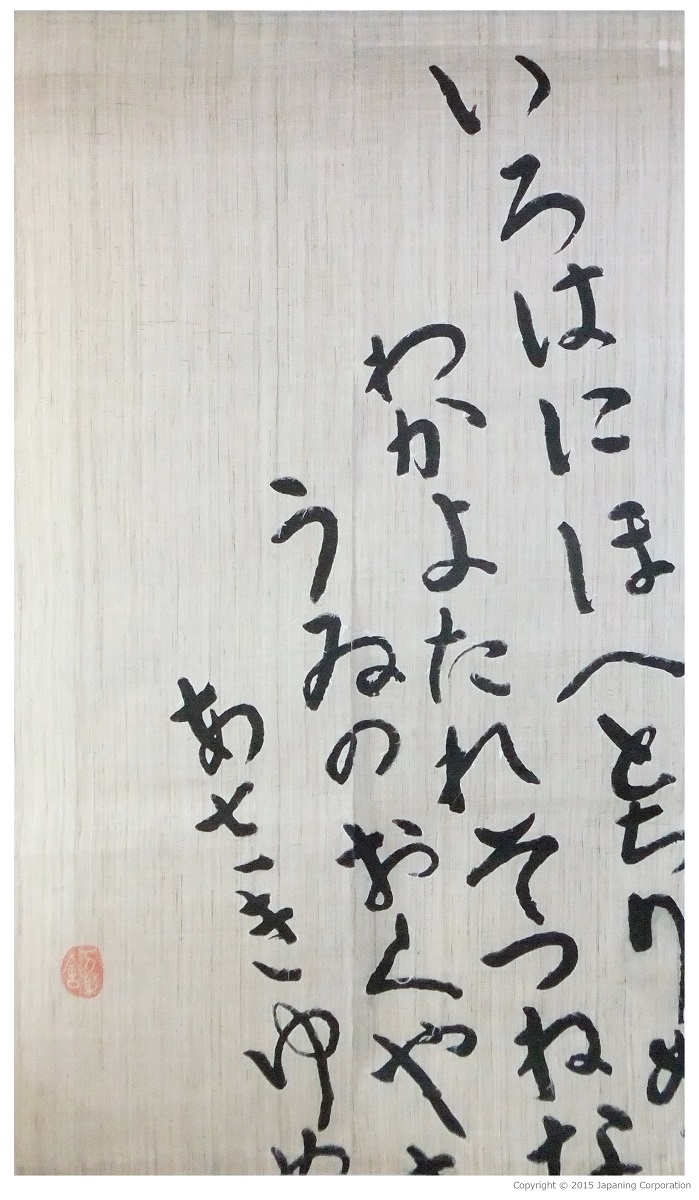 いろはにほへとちりぬ
わかよたれそつねな
うゐのおくや
あさきゆめ
Copyright © 2015 Japaning Corporation